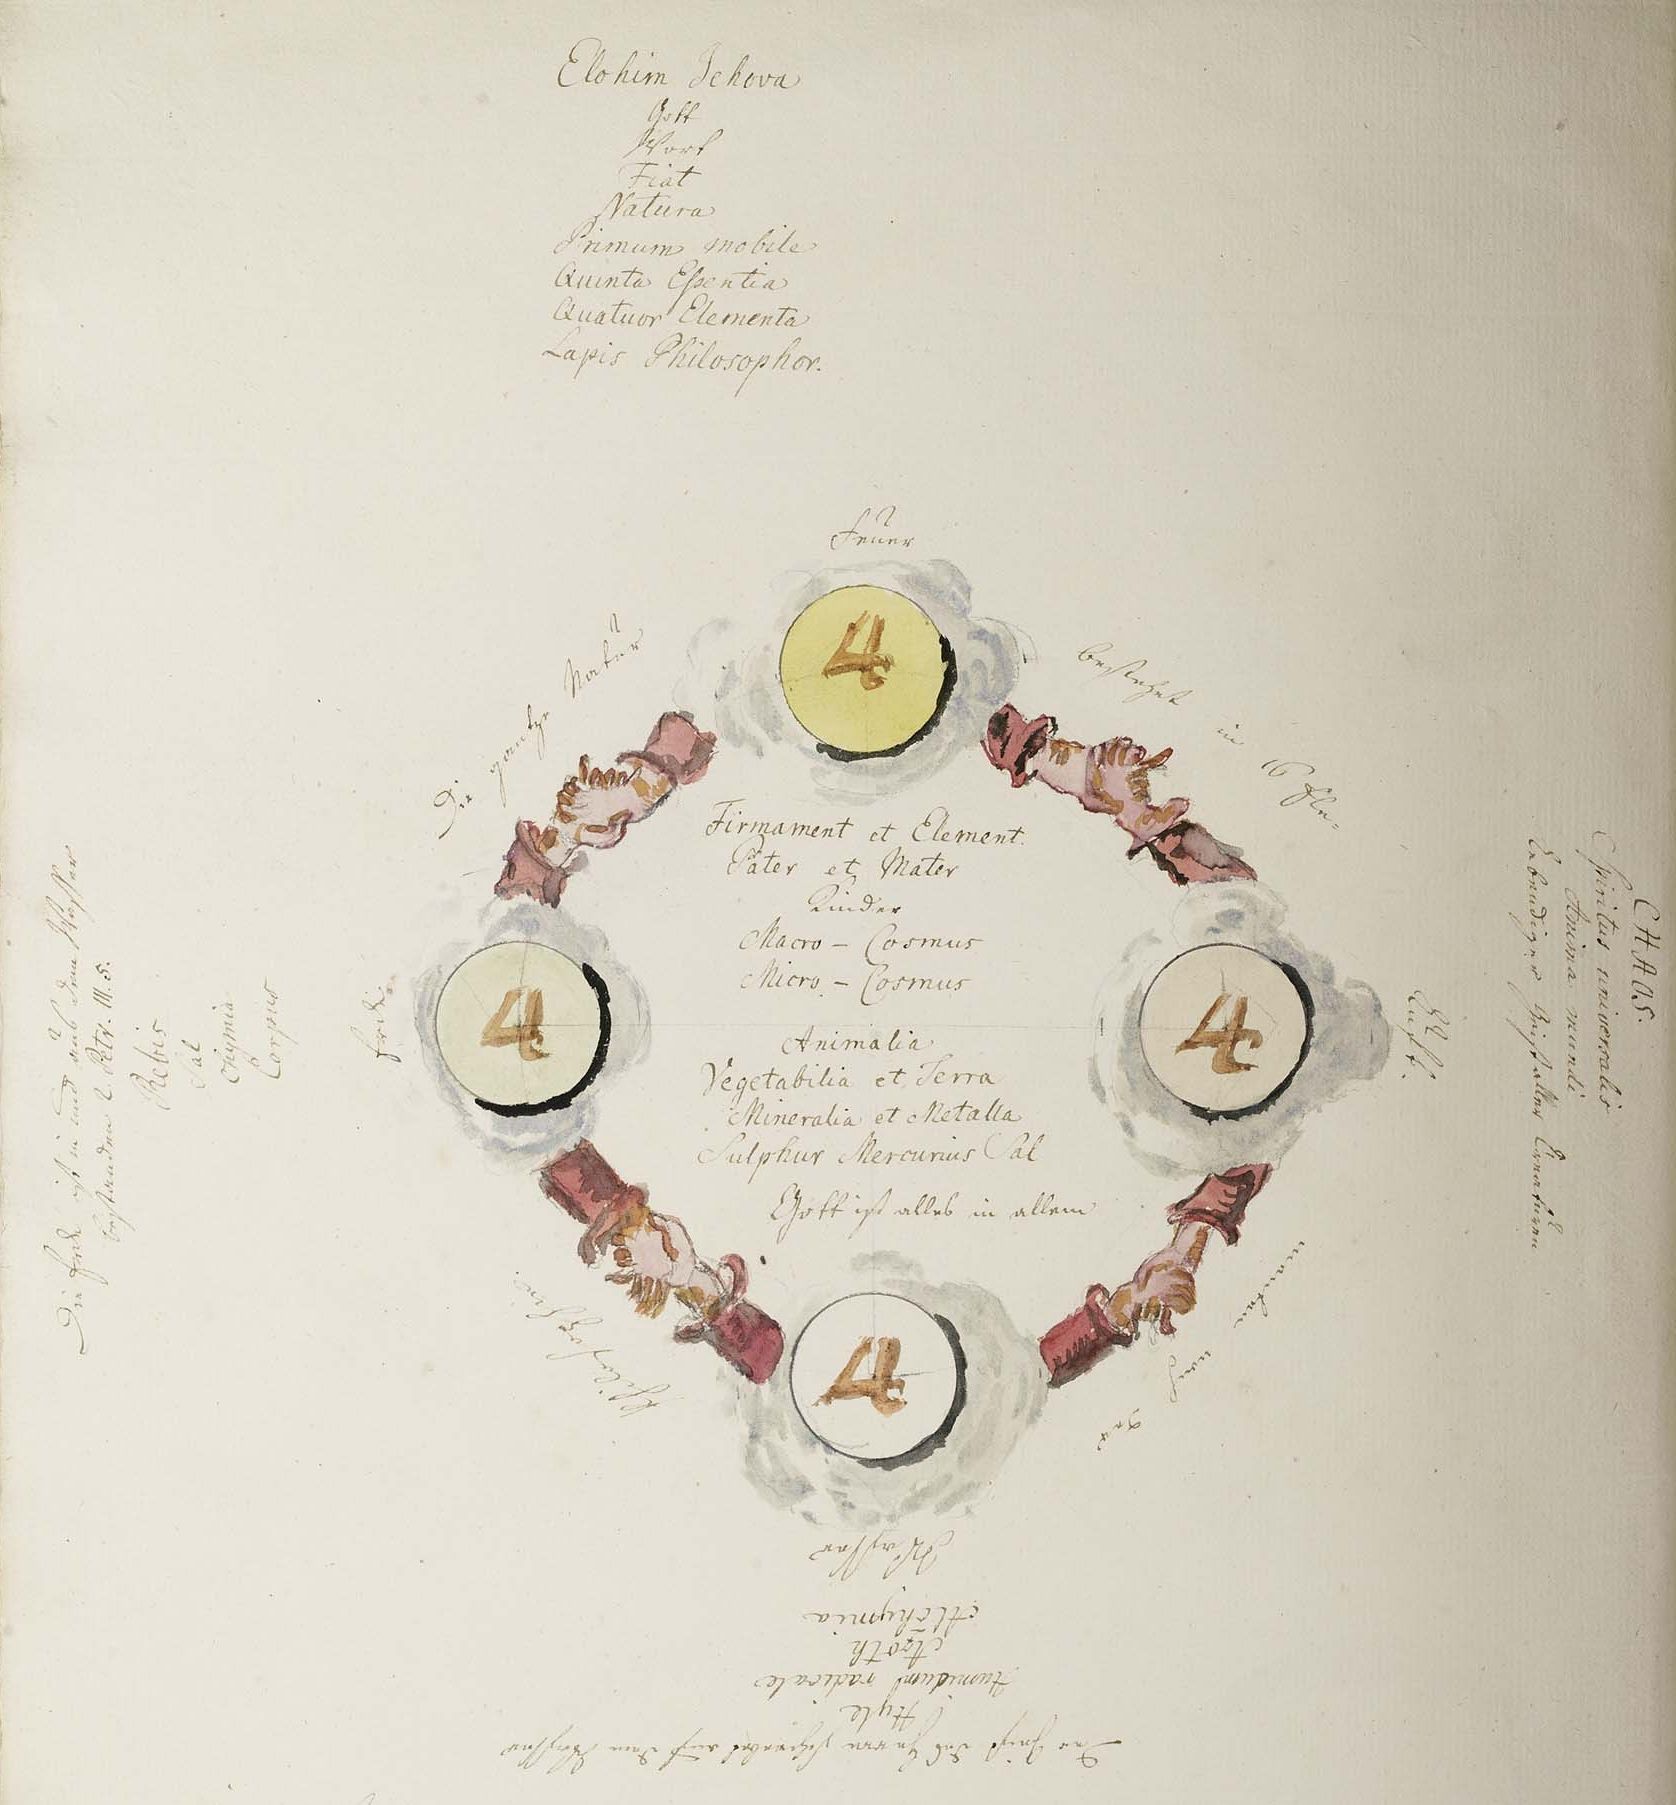 Elohim Jehova
Gott
Wort
Fiat
Natura
Primum mobile
Quinta Eſsentia
Quatuor Elementa
Lapis Philosophor.
Feüer
Die gantze Natur
bestehet in 16
4
Firmament et Element.
Pater et Mater
Kinder
Macro - Cosmus
Micro - Cosmus
4
4
Erde
Lufft.
Animalia
Vegetabilia et Terra
Mineralia et Metalla
Sulphur Mercurius Sal
Gott ist alles in allem
4
CHAOS.
Spiritus universalis
Anima mundi
Lebendiger Geist aller Creaturen
Die Erde ist in und aus dem Waſser
bestanden 2. Petr. III. 5.
Rebis
Sal
Chymia
Corpus
Waſser
Alchymia
Azoth
Humidum radicale
Hyle
Der Geist des Herrn schwebet auf dem Waſser